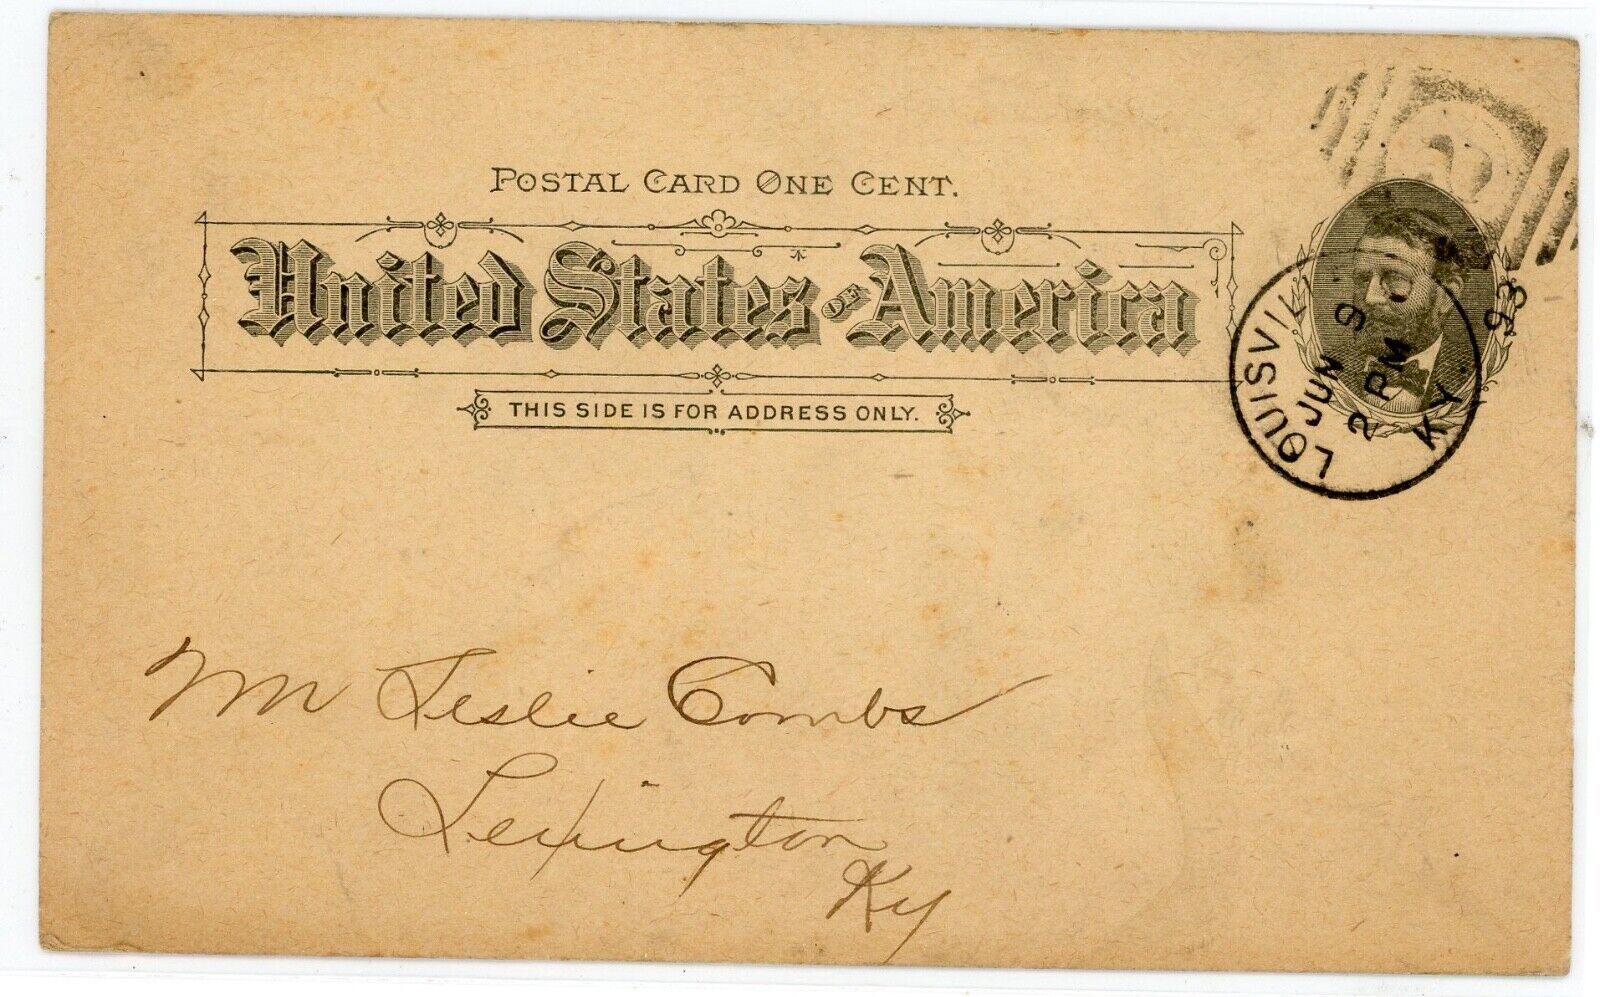 POSTAL CARD ONE CENT.
United States OF America
THIS SIDE IS FOR ADDRESS ONLY.
LOUISVILL
JUN 9
2 PM
93
KY.
Mr Leslie Combs
Lexington
Ky